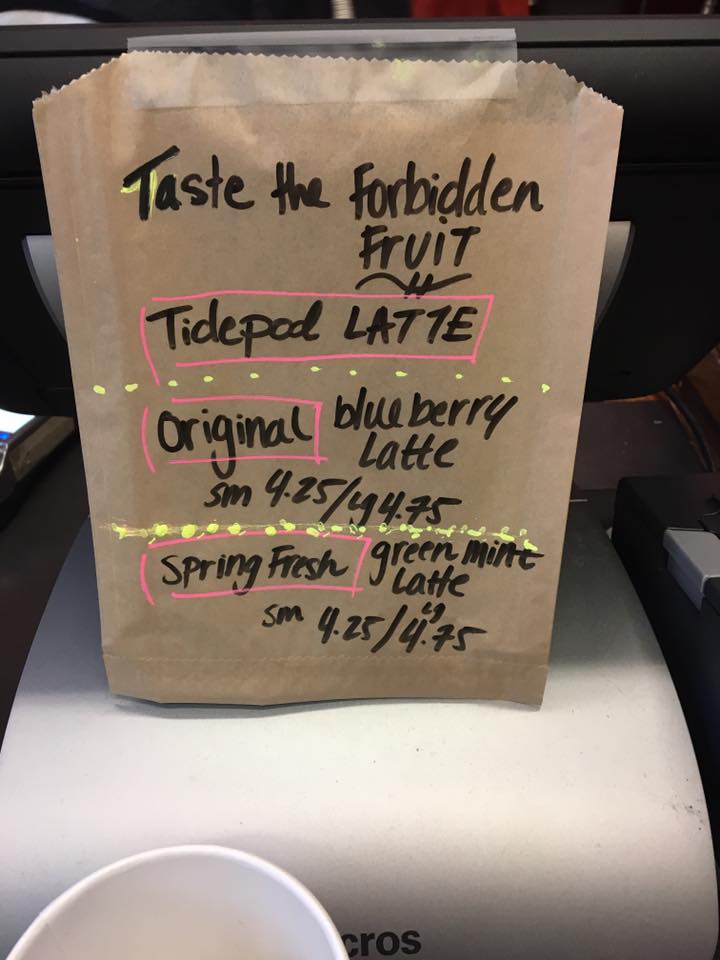 Taste the Forbidden
FRUIT
Tidepod LATTE
Original blueberry
Latte
sm 4.25/ly 4.75
Spring Fresh green mint
Latte
sm 4.25/4.75
cros